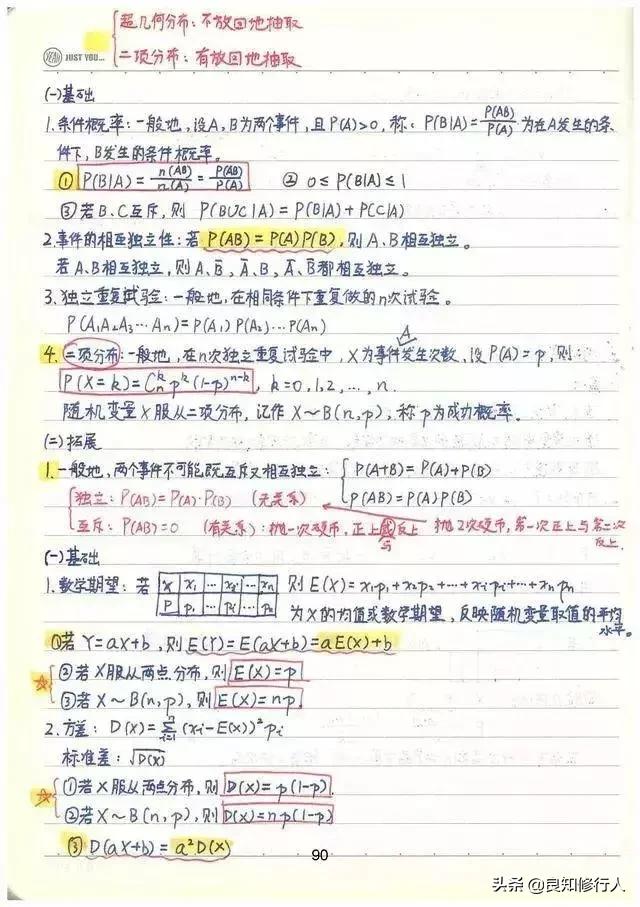 超几何分布：不放回地抽取
二项分布：有放回地抽取
YEAH JUST YOU...
(一)基础
1.条件概率：一般地，设A，B为两个事件，且P(A)>0，称：P(B|A)=P(AB)/P(A) 为在A发生的条
件下，B发生的条件概率。
① P(B|A)=n(AB)/n(A)=P(AB)/P(A) ② 0≤P(B|A)≤1
③ 若B、C互斥，则 P(BUC|A)=P(B|A)+P(C|A)
2.事件的相互独立性：若 P(AB)=P(A)P(B)，则A、B相互独立。
若A、B相互独立，则A、B̄，Ā、B，Ā、B̄都相互独立。
3.独立重复试验：一般地，在相同条件下重复做的n次试验。
P(A₁A₂A₃…An)=P(A₁)P(A₂)…P(An)
A
4.二项分布：一般地，在n次独立重复试验中，X为事件发生次数，设P(A)=p，则：
P(X=k)=Cₙᵏpᵏ(1-p)ⁿ⁻ᵏ，k=0,1,2，…，n.
随机变量X服从二项分布，记作X~B(n,p)，称p为成功概率。
(二)拓展
1.一般地，两个事件不可能既互斥又相互独立：P(A+B)=P(A)+P(B)
P(AB)=P(A)P(B)
独立：P(AB)=P(A)·P(B) (无关系)
互斥：P(AB)=0 (有关系)：抛一次硬币，正上或反上 抛2次硬币，第一次正上与第二次
与 反上.
(一)基础
1.数学期望：若 X x₁ … xᵢ … xn 则E(X)=x₁p₁+x₂p₂+…+xᵢpᵢ+…+xnpn
P p₁ … pᵢ … pn 为X的均值或数学期望，反映随机变量取值的平均
水平。
①若Y=aX+b，则E(Y)=E(aX+b)=aE(X)+b
②若X服从两点分布，则E(X)=p
③若X~B(n,p)，则E(X)=np.
2.方差：D(X)=∑ⁿᵢ₌₁(xᵢ-E(X))²pᵢ
标准差：√D(X)
①若X服从两点分布，则D(X)=p(1-p).
②若X~B(n,p)，则D(X)=np(1-p)
③ D(aX+b)=a²D(X)
90
头条 @良知修行人